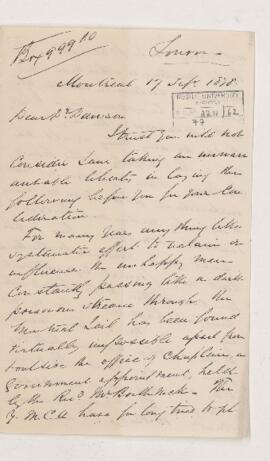 Box 999 10
London
Montreal 17 Sep. 1878
McGILL UNIVERSITY
ARCHIVES
ACC. NO. 2211 / 62
REF. 77
Dear Dr Dawson
I trust you will not
consider I am taking an unwarr
antable liberty in laying the
following before you for your con
sideration.
For many years any thing like
systematic effort to reclaim or
influence the unhappy mass
constantly passing like a dark
poisonous stream through the
Montreal Jail has been found
virtually impossible apart from
outside the office of Chaplain, a
Government appointment, held
by the Revd Mr Borthwick - The
Y.M.C.A have for long tried to